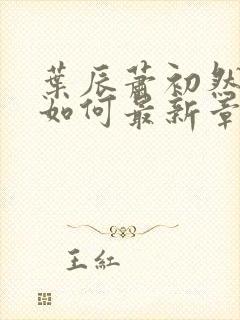 葉辰蕭初然
如何最新章
王紅